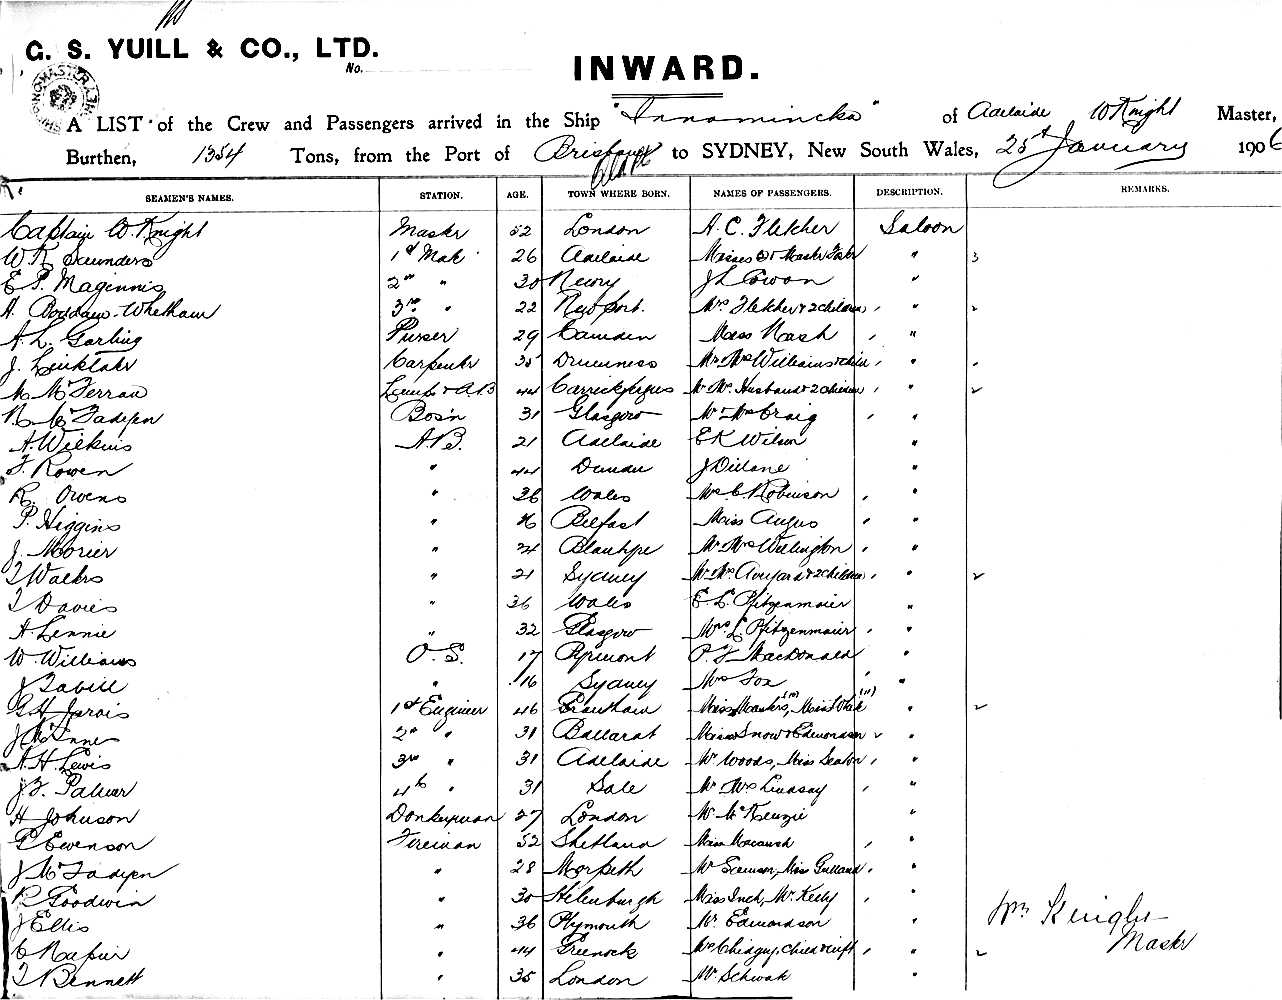 G. S. YUILL & CO., LTD.
No.
INWARD.
A LIST of the Crew and Passengers arrived in the Ship "Innamincka" of Adelaide W Knight Master,
Burthen, 1354 Tons, from the Port of Brisbane to SYDNEY, New South Wales, 25th January 1906
SEAMEN'S NAMES. STATION. AGE. TOWN WHERE BORN. NAMES OF PASSENGERS. DESCRIPTION. REMARKS.
Captain W. Knight Master 52 London A. C. Fletcher Saloon
W R Saunders 1st Mate 26 Adelaide Misses & Master "
E P. Maginnis 2nd " 30 Newry J L Cowan "
H. Whetham 3rd " 22 Newport. Mrs Fletcher & 2 children "
A. L. Garling Purser 29 Camden Miss Nash "
J. Linklater Carpenter 35 Mr Mrs Williams & child "
Mc Ferran Lamps & A.B 44 Carrickfergus Mr Mrs Husband & 2 children "
N. Mc Fadyen Bos'n 31 Glasgow Mr Mrs Craig "
A. Wilkins A.B. 21 Adelaide E K Wilson "
F. Rowen " 44 Dundee J Dillane "
R. Owens " 36 Wales Mrs C. Robinson "
P. Higgins " Belfast Miss Angus "
J. Morier " Mr Mrs Wellington "
T Walters " 21 Sydney Mr Mrs & 2 children "
T Davies " 36 Wales E. L. Pfitzenmaier "
A. Lennie " 32 Glasgow Mrs L Pfitzenmaier "
W. Williams O.S. 17 Pyrmont P. F. MacDonald "
J " 16 Sydney Mrs Fox "
G. H Jarvis 1st Engineer 46 Miss , Miss "
J McInnes 2nd " 31 Ballarat Misses Snow & Edmondson "
A. H. Lewis 3rd " 31 Adelaide Mr Woods, Miss Seaton "
J. F. Palmer 4th " 31 Sale Mr Mrs Lindsay "
H Johnson Donkeyman 27 London Mr McKenzie "
P Ewenson Fireman 52 Shetland Miss "
J McFadyen " 28 Morpeth Mr , Miss Gulland "
R Goodwin " 30 Helenburgh Miss Inch, Mr Kelly "
J Ellis " 36 Plymouth Mr Edmondson "
C Napier " 44 Greenock Mrs Chidgey, Child & inft "
T Bennett " 35 London Mr Schwak "
Wm Knight
Master